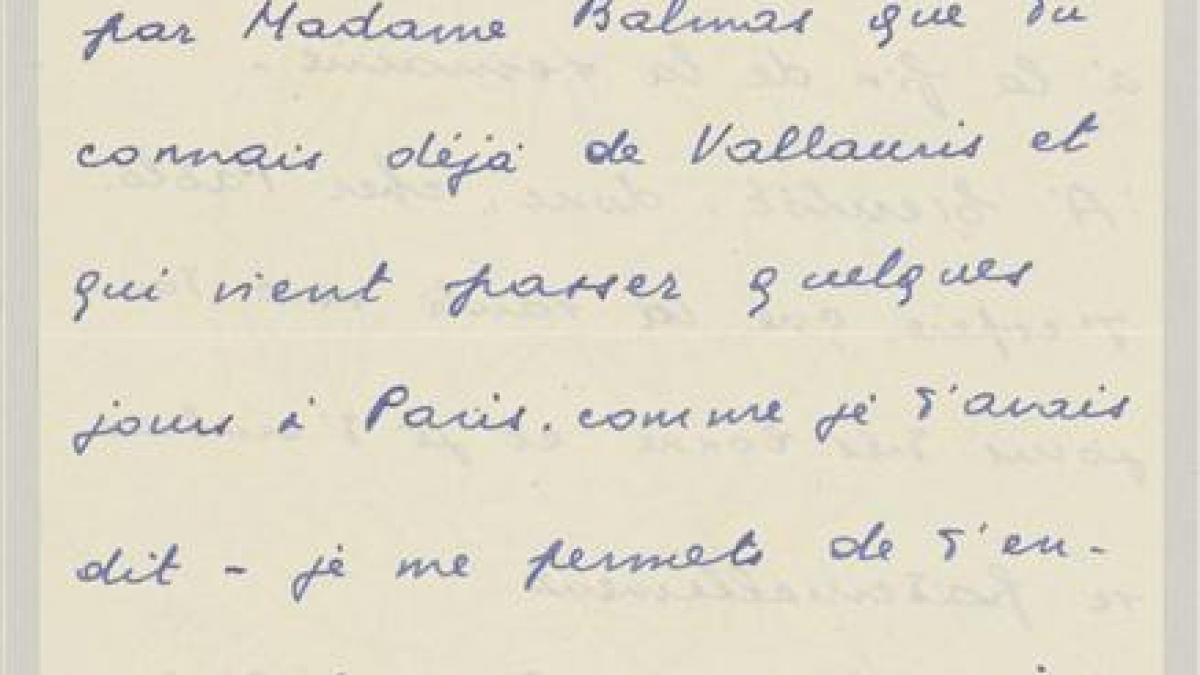 par Madame Balmas que tu
connais déjà de Vallauris et
qui vient passer quelques
jours à Paris. comme je t'avais
dit - je me permets de t'en-